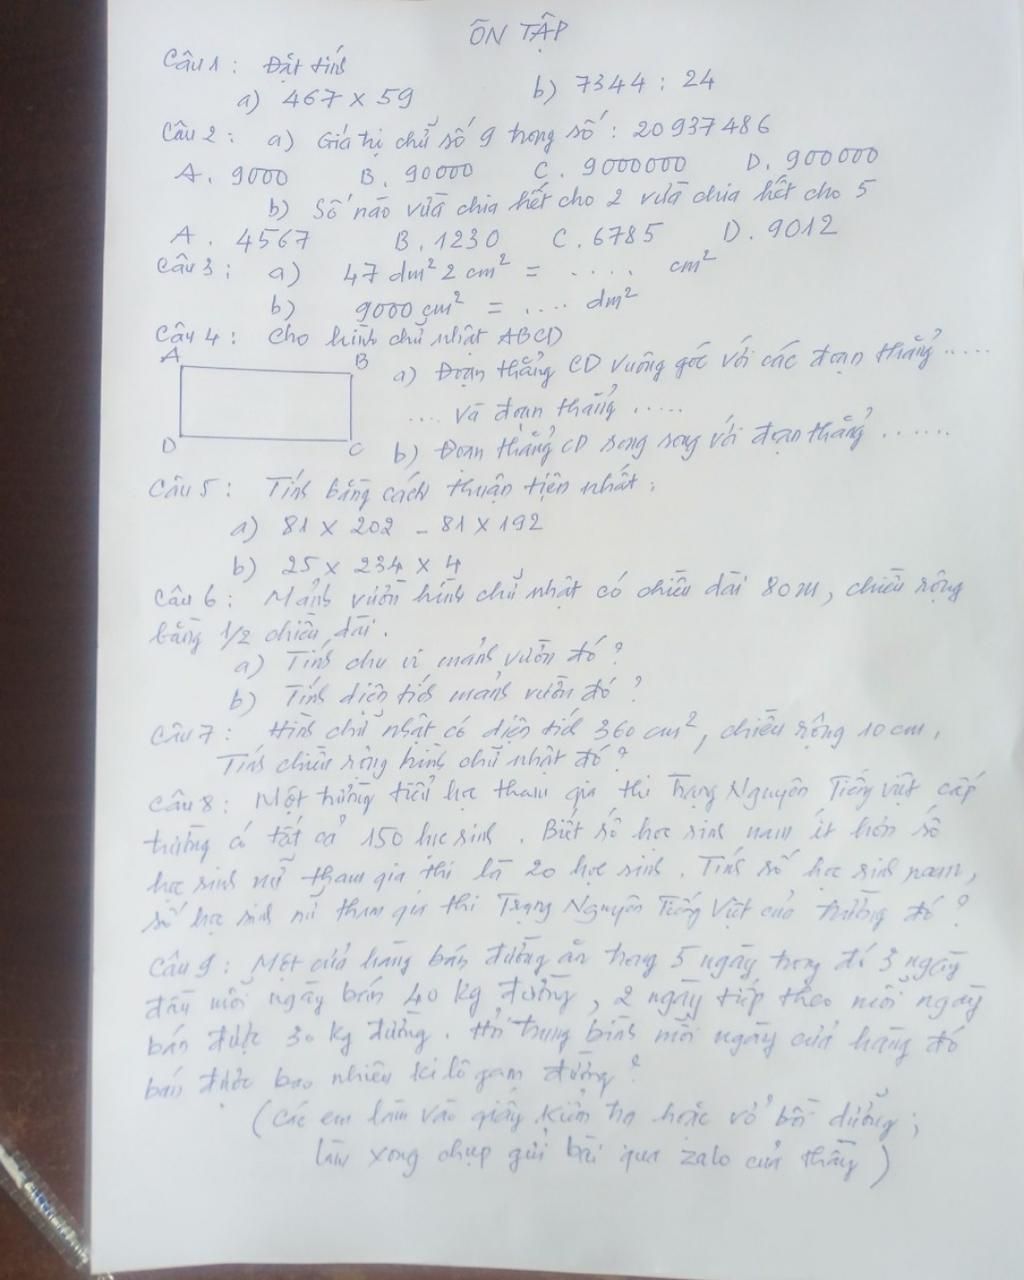 ÔN TẬP
Câu 1 : Đặt tính
a) 467 x 59 b) 7344 : 24
Câu 2 : a) Giá trị chữ số 9 trong số : 20937486
A. 9000 B. 90000 C. 9000000 D. 900000
b) Số nào vừa chia hết cho 2 vừa chia hết cho 5
A. 4567 B. 1230 C. 6785 D. 9012
Câu 3 : a) 47 dm² 2 cm² = ..... cm²
b) 9000 cm² = .... dm²
Câu 4 : Cho hình chữ nhật ABCD
A B
a) Đoạn thẳng CD vuông góc với các đoạn thẳng .....
.... và đoạn thẳng .....
D C
b) Đoạn thẳng CD song song với đoạn thẳng ......
Câu 5 : Tính bằng cách thuận tiện nhất :
a) 81 x 202 - 81 x 192
b) 25 x 234 x 4
Câu 6 : Mảnh vườn hình chữ nhật có chiều dài 80m, chiều rộng
bằng 1/2 chiều dài.
a) Tính chu vi mảnh vườn đó ?
b) Tính diện tích mảnh vườn đó ?
Câu 7 : Hình chữ nhật có diện tích 360 cm², chiều rộng 10 cm,
Tính chiều rộng hình chữ nhật đó ?
Câu 8 : Một trường tiểu học tham gia thi Trạng Nguyên Tiếng Việt cấp
trường có tất cả 150 học sinh . Biết số học sinh nam ít hơn số
học sinh nữ tham gia thi là 20 học sinh . Tính số học sinh nam,
số học sinh nữ tham gia thi Trạng Nguyên Tiếng Việt của trường đó ?
Câu 9 : Một cửa hàng bán đường ăn trong 5 ngày trong đó 3 ngày
đầu mỗi ngày bán 40 kg đường, 2 ngày tiếp theo mỗi ngày
bán được 30 kg đường . Hỏi trung bình mỗi ngày cửa hàng đó
bán được bao nhiêu ki lô gam đường ?
(Các em làm vào giấy kiểm tra hoặc vở bồi dưỡng ;
làm xong chụp gửi bài qua zalo của thầy)